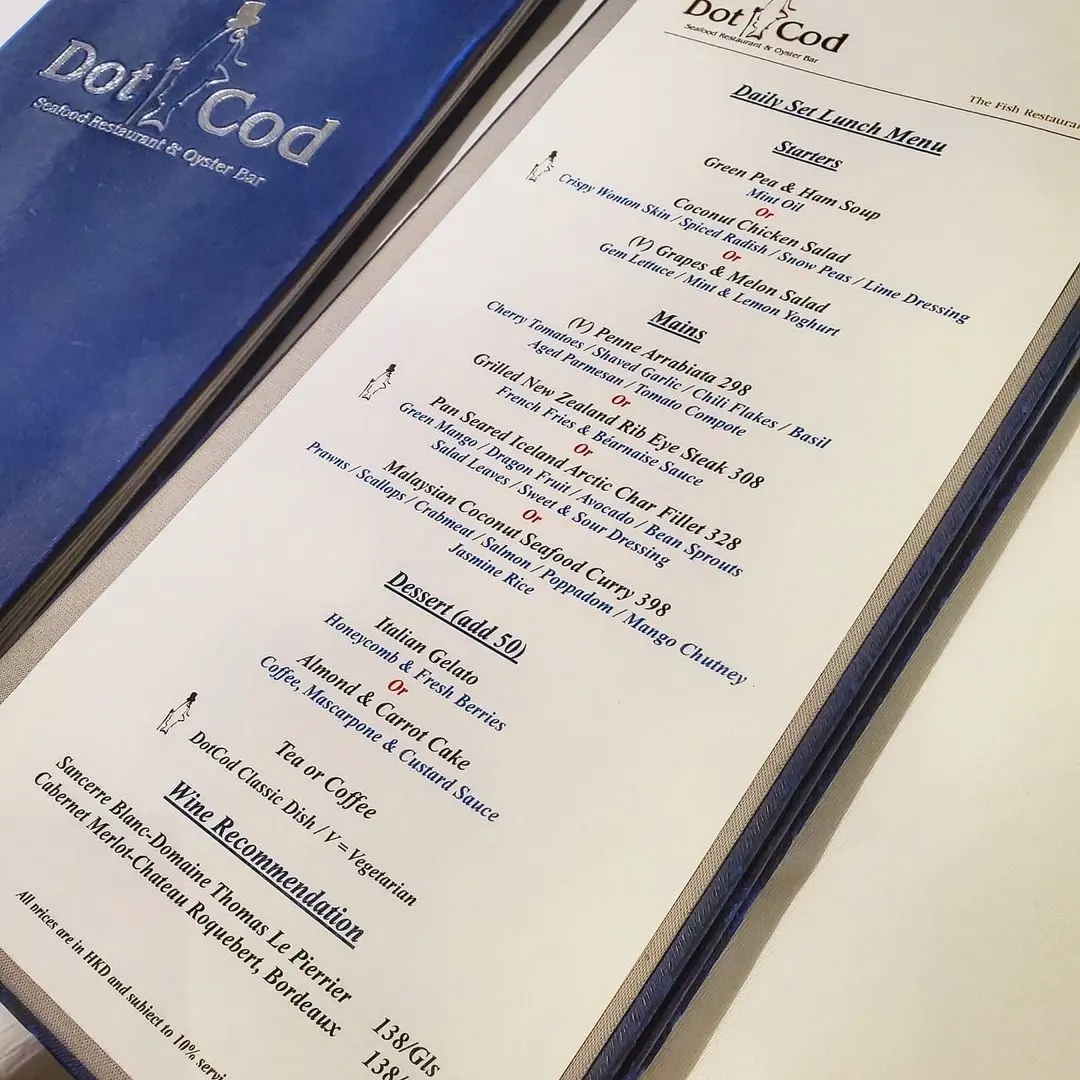 Dot Cod
Seafood Restaurant & Oyster Bar
Dot Cod
Seafood Restaurant & Oyster Bar
The Fish Restaurant
Daily Set Lunch Menu
Starters
Green Pea & Ham Soup
Mint Oil
Or
Coconut Chicken Salad
Crispy Wonton Skin / Spiced Radish / Snow Peas / Lime Dressing
Or
(V) Grapes & Melon Salad
Gem Lettuce / Mint & Lemon Yoghurt
Mains
(V) Penne Arrabiata 298
Cherry Tomatoes / Shaved Garlic / Chili Flakes / Basil
Aged Parmesan / Tomato Compote
Or
Grilled New Zealand Rib Eye Steak 308
French Fries & Béarnaise Sauce
Or
Pan Seared Iceland Arctic Char Fillet 328
Green Mango / Dragon Fruit / Avocado / Bean Sprouts
Salad Leaves / Sweet & Sour Dressing
Or
Malaysian Coconut Seafood Curry 398
Prawns / Scallops / Crabmeat / Salmon / Poppadom / Mango Chutney
Jasmine Rice
Dessert (add 50)
Italian Gelato
Honeycomb & Fresh Berries
Or
Almond & Carrot Cake
Coffee, Mascarpone & Custard Sauce
Tea or Coffee
DotCod Classic Dish / V = Vegetarian
Wine Recommendation
Sancerre Blanc-Domaine Thomas Le Pierrier 138/Gls
Cabernet Merlot-Chateau Roquebert, Bordeaux 138/
All prices are in HKD and subject to 10%